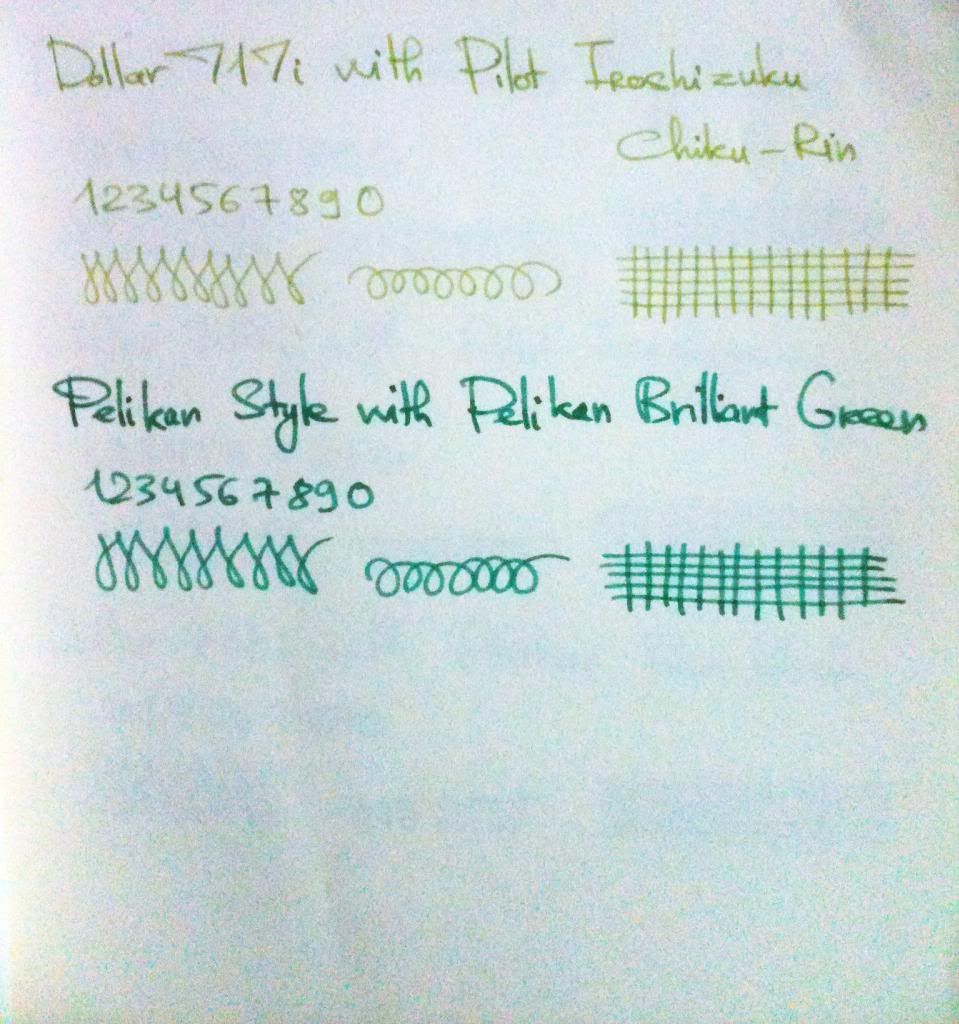 Dollar 717i with Pilot Iroshizuku
Chiku-Rin
1234567890
Pelikan Style with Pelikan Brilliant Green
1234567890